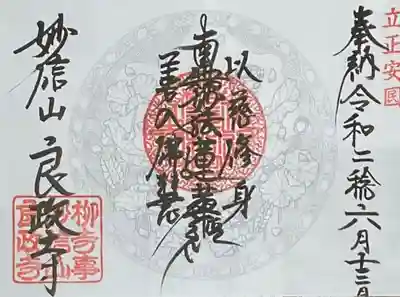 立正安国
奉納令和二稔六月十三日
以慈修身
南無妙法蓮華経
善入佛慧
妙信山良政寺